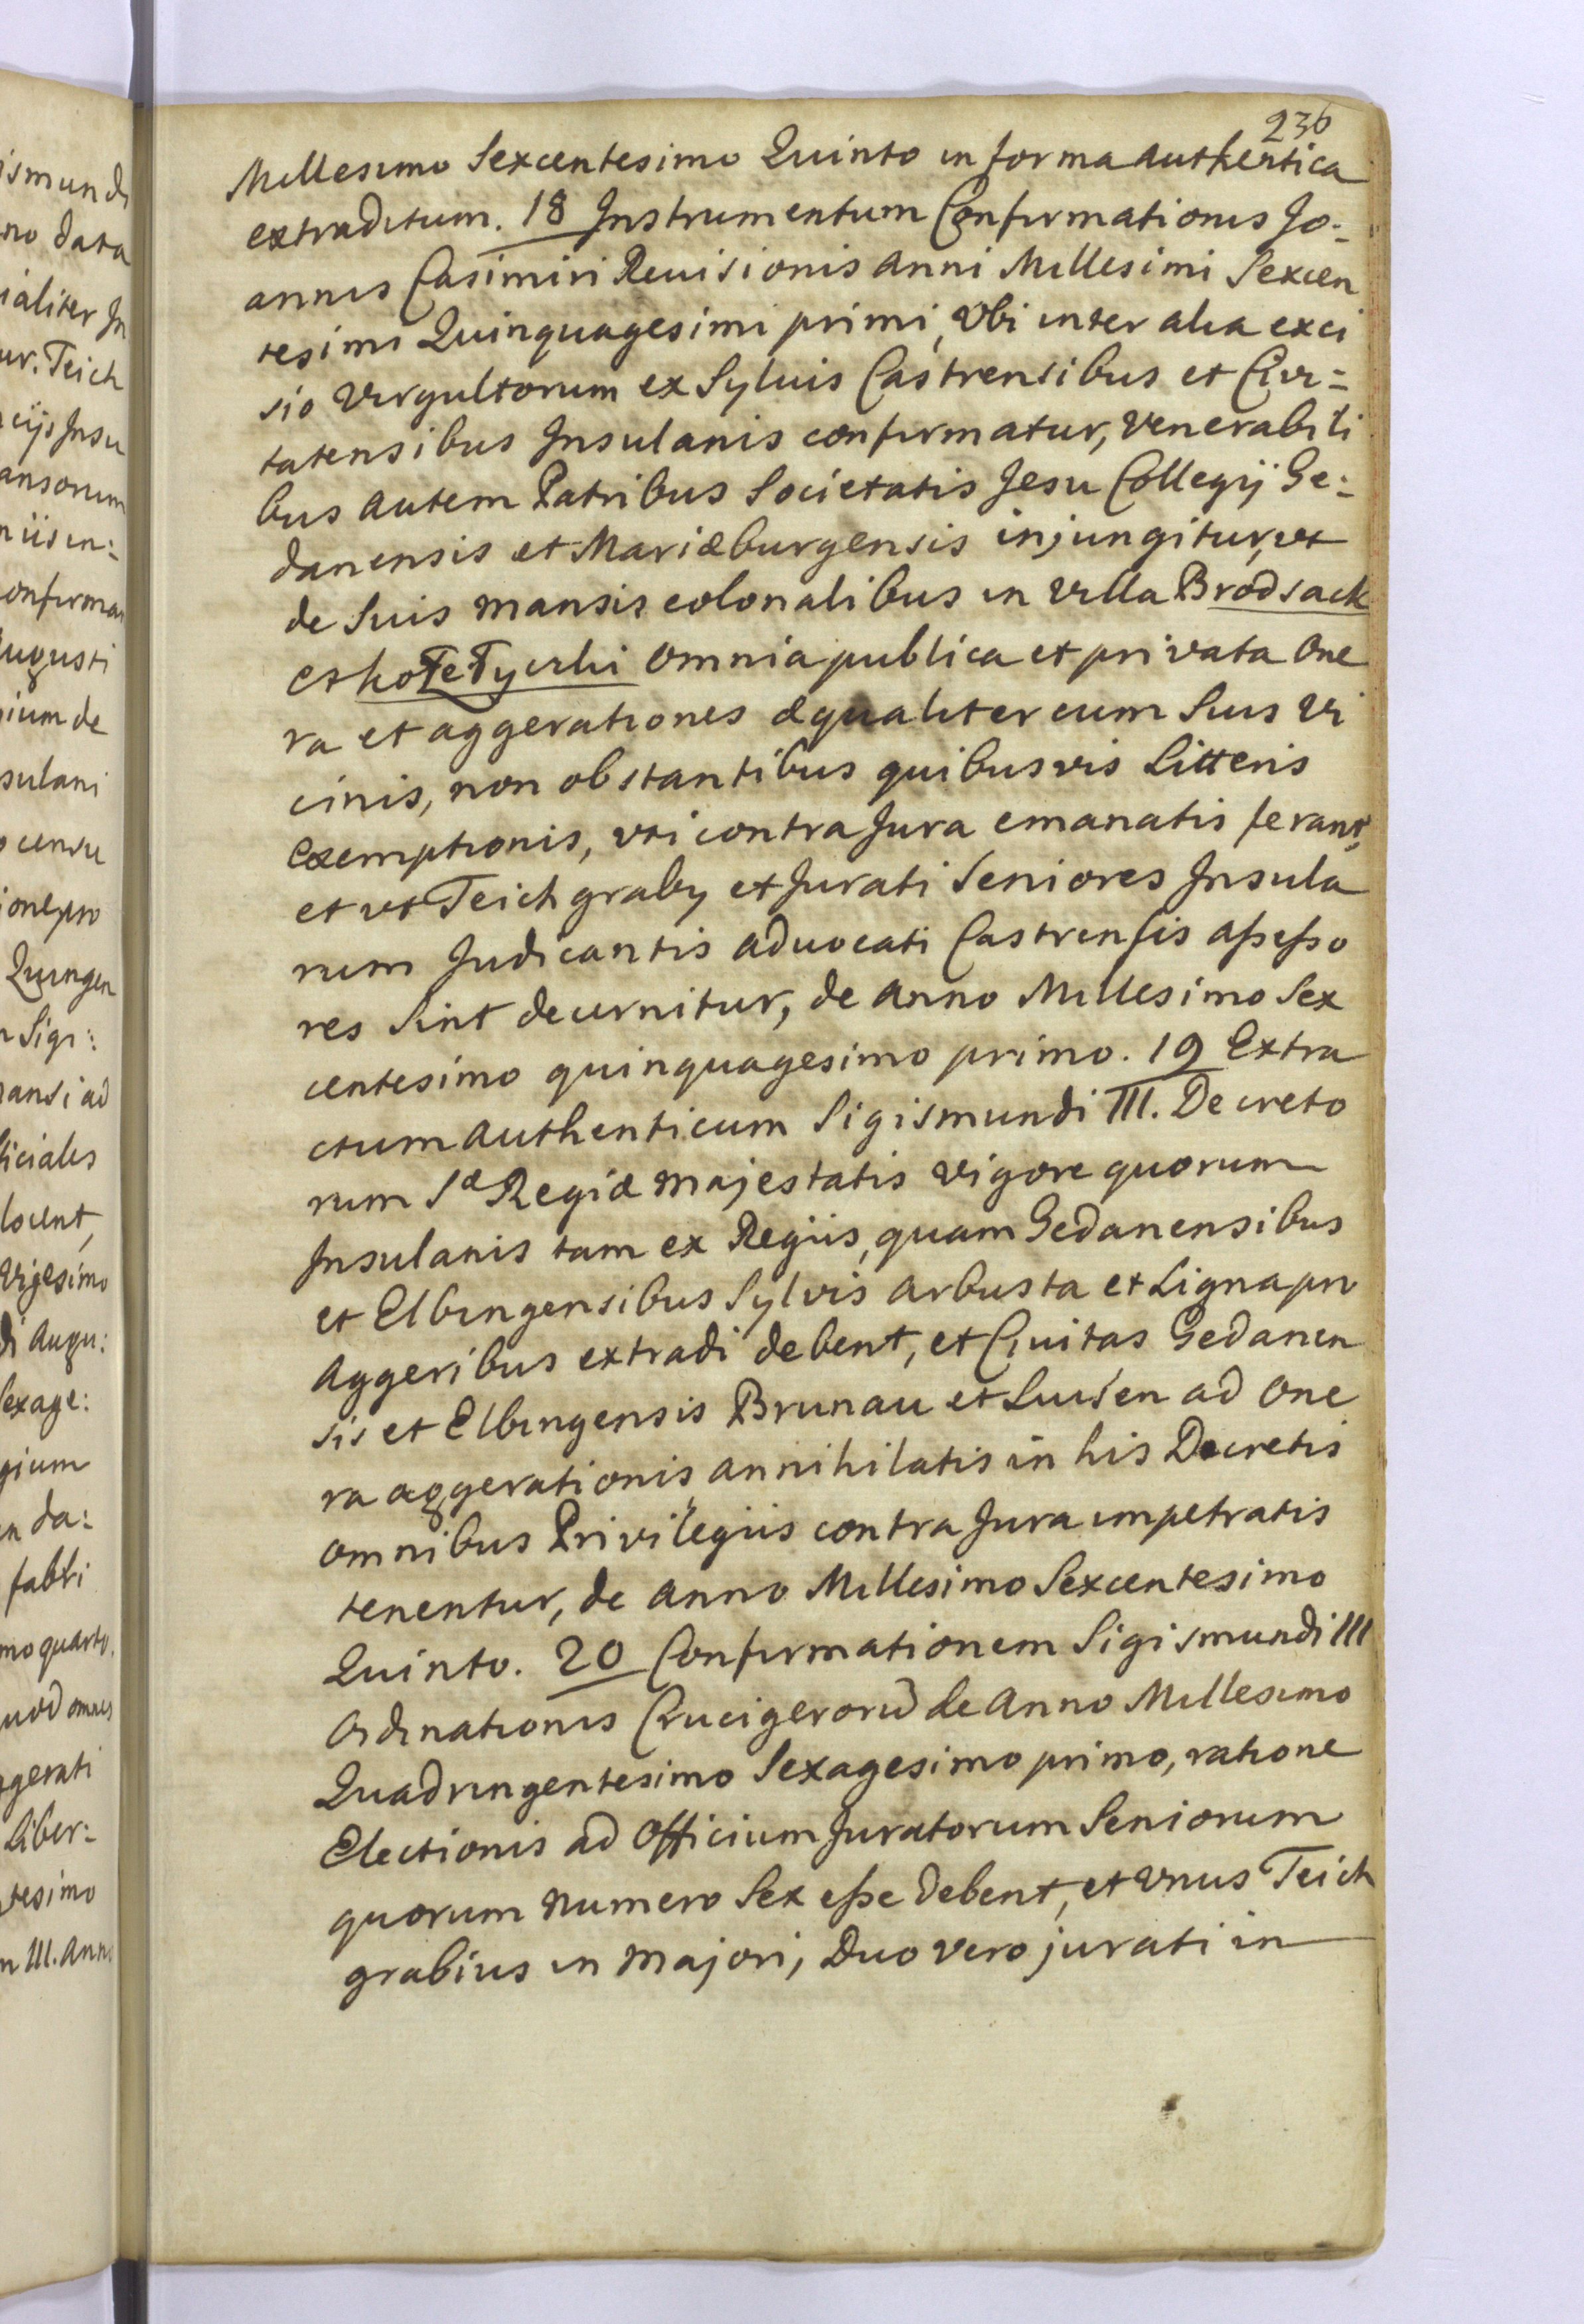 236
Millesimo Sexcentesimo Quinto in forma authentica
extraditum. 18 Instrumentum Confirmationis Jo-
annis Casimiri Reuisionis anni Millesimi Sexcen
tesimi Quinquagesimi primi, Vbi inter alia exci
sio Virgultorum ex Syluis Castrensibus et Civi=
tatensibus Insulanis confirmatur, Venerabili
bus autem Patribus Societatis Jesu Collegij Ge:
danensis et Mariæburgensis injungitur, ut
de Suis mansis colonalibus in Villa Brodsack
et omnia publica et privata One
ra et aggerationes æqualiter cum Suis Vi
cinis, non obstantibus quibusvis Litteris
exemptionis, vti contra Jura emanatis ferant,
et vt Teichgraby et Jurati Seniores Insula
rum Judicantis aduocati Castrensis assesso
res Sint decernitur, de anno Millesimo Sex
centesimo quinquagesimo primo. 19 Extra
ctum authenticum Sigismundi III. Decreto
rum Sæ Regiæ Majestatis vigore quorum
Insulanis tam ex Regiis, quam Gedanensibus
et Elbingensibus Sylvis arbusta et Ligna pro
Aggeribus extradi debent, et Ciuitas Gedanen
sis et Elbingensis Brunau et Luisen ad One
ra aggerationis annihilatis in his Decretis
omnibus Privilegiis contra Jura impetratis
tenentur, de anno Millesimo Sexcentesimo
Quinto. 20 Confirmationem Sigismundi III
Ordinationis Crucigerorũ de Anno Millesimo
Quadringentesimo Sexagesimo primo, ratione
Electionis ad Officium Juratorum Seniorum
quorum numero Sex esse debent, et Vnus Teich
grabius in Majori, Duo vero jurati in